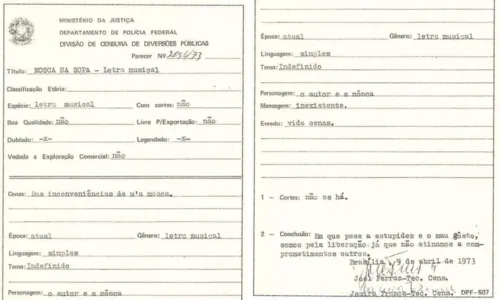 MINISTÉRIO DA JUSTIÇA
DEPARTAMENTO DE POLÍCIA FEDERAL
DIVISÃO DE CENSURA DE DIVERSÕES PÚBLICAS
Parecer Nº 2856/73
Título: MOSCA NA SOPA - Letra musical
Classificação Etária:
Espécie: letra musical Com cortes: não
Boa Qualidade: não Livre P/Exportação: não
Dublado: -x- Legendado: -x-
Vedada a Exploração Comercial: não
Cenas: Das inconveniências de u'a mosca.
Época: atual Gênero: letra musical
Linguagem: simples
Tema: Indefinido
Personagem: o autor e a môsca
Época: atual Gênero: letra musical
Linguagem: simples
Tema: Indefinido
Personagem: o autor e a môsca
Mensagem: inexistente.
Enredo: vide cenas.
1 - Cortes: não os há.
2 - Conclusão: Em que pese a estupidez e o mau gôsto,
somos pela liberação já que não atinamos a com-
prometimentos outros.
Brasília, 9 de abril de 1973
José Ferraz-Tec. Cens.
França-Tec. Cens. DPF-507